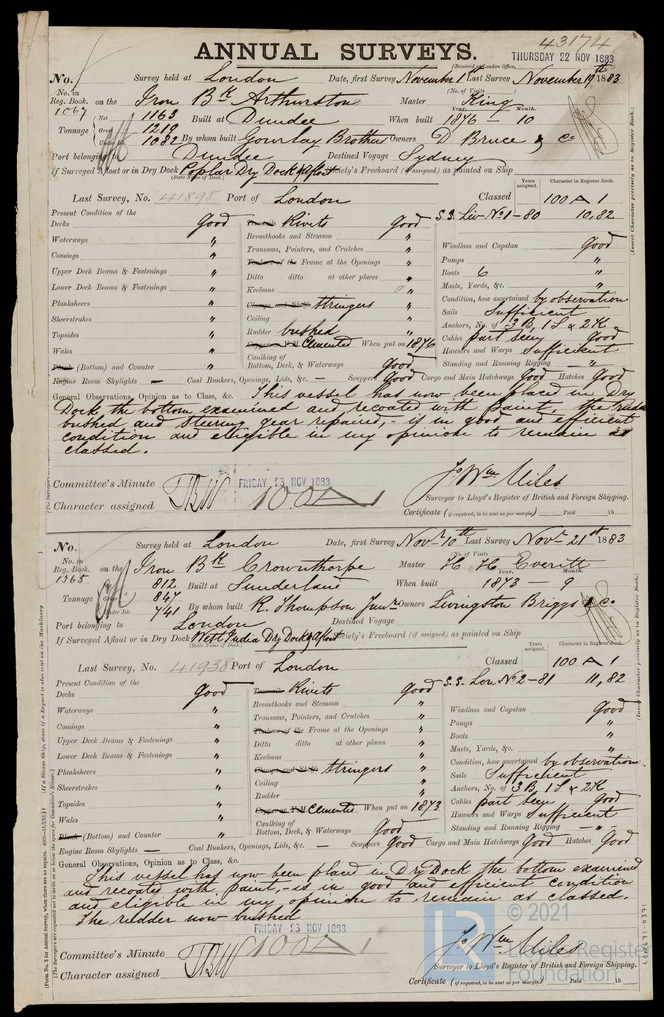 43174
ANNUAL SURVEYS.
(Received at London Office, THURSDAY 22 NOV 1883
No. Survey held at London Date, first Survey November 1st Last Survey November 19th 1883
(No. of Visits )
No. in Reg. Book. 1067 on the Iron Bk Arthurstone Master King
Year. Month.
Tonnage Net 1163 Built at Dundee When built 1876 - 10
Gross 1219
Under Dk. 1082 By whom built Gourlay Brothers Owners D. Bruce & Co
Port belonging to Dundee Destined Voyage Sydney
If Surveyed Afloat or in Dry Dock Poplar Dry Dock & Afloat Society's Freeboard (if assigned) as painted on Ship
(State Name of Dock.)
Years assigned. Character in Register Book.
Last Survey, No. 41898 Port of London Classed 100 A 1
S.S. Liv No 1-80 10,82
Present Condition of the
Decks Good
Waterways "
Comings "
Upper Deck Beams & Fastenings "
Lower Deck Beams & Fastenings "
Planksheers "
Sheerstrakes "
Topsides "
Wales "
Plank (Bottom) and Counter "
Rivets Good
Breasthooks and Stemson "
Transoms, Pointers, and Crutches "
Timbers of the Frame at the Openings "
Ditto ditto at other places "
Keelsons "
Clamps and Shelfs Stringers "
Ceiling "
Rudder bushed "
Cemented When put on 1876
Caulking of Bottom, Deck, & Waterways Good
Windlass and Capstan Good
Pumps "
Boats 6 "
Masts, Yards, &c. "
Condition, how ascertained by observation
Sails Sufficient
Anchors, No. of 3 B, 1 S & 2 K
Cables part seen Good
Hawsers and Warps Sufficient
Standing and Running Rigging - " -
Engine Room Skylights — Coal Bunkers, Openings, Lids, &c. — Scuppers Good Cargo and Main Hatchways Good Hatches Good
General Observations, Opinion as to Class, &c. This vessel has now been placed in Dry
Dock the bottom examined and recoated with paint, the rudder
bushed and steering gear repaired, - is in good and efficient
condition and eligible in my opinion to remain as
classed.
Committee's Minute FRIDAY 23 NOV 1883
Character assigned 100 A 1
Jo Wm Miles
Surveyor to Lloyd's Register of British and Foreign Shipping.
Certificate (if required, to be sent as per margin) Paid 18
No. Survey held at London Date, first Survey Novr 10th Last Survey Novr 21st 1883
(No. of Visits )
No. in Reg. Book. 1365 on the Iron Bk Crownthorpe Master H. H. Everitt
Year. Month.
Tonnage 812 Built at Sunderland When built 1873 9
847
Under Dk. 741 By whom built R. Thompson Junr Owners Livingston Briggs & Co.
Port belonging to London Destined Voyage
If Surveyed Afloat or in Dry Dock West India Dry Dock & Afloat Society's Freeboard (if assigned) as painted on Ship
(State Name of Dock.)
Years assigned. Character in Register Book.
Last Survey, No. 41938 Port of London Classed 100 A 1
S.S. Lon No 2-81 11,82
Present Condition of the
Decks Good
Waterways "
Comings "
Upper Deck Beams & Fastenings "
Lower Deck Beams & Fastenings "
Planksheers "
Sheerstrakes "
Topsides "
Wales "
Plank (Bottom) and Counter "
Rivets Good
Breasthooks and Stemson "
Transoms, Pointers, and Crutches "
Timbers of the Frame at the Openings "
Ditto ditto at other places "
Keelsons "
Clamps and Shelfs Stringers "
Ceiling "
Rudder "
Cemented When put on 1873
Caulking of Bottom, Deck, & Waterways Good
Windlass and Capstan Good
Pumps "
Boats "
Masts, Yards, &c. "
Condition, how ascertained by observation
Sails Sufficient
Anchors, No. of 3 B, 1 S & 2 K
Cables part seen Good
Hawsers and Warps Sufficient
Standing and Running Rigging - " -
Engine Room Skylights — Coal Bunkers, Openings, Lids, &c. — Scuppers Good Cargo and Main Hatchways Good Hatches Good
General Observations, Opinion as to Class, &c.
This vessel has now been placed in Dry Dock the bottom examined
and recoated with paint, - is in good and efficient condition
and eligible in my opinion to remain as classed.
The rudder now bushed
FRIDAY 23 NOV 1883
Committee's Minute
Character assigned 100 A 1
Jo Wm Miles
Surveyor to Lloyd's Register of British and Foreign Shipping.
Certificate (if required, to be sent as per margin) Paid 18
© 2021
Lloyd's Register
Foundation